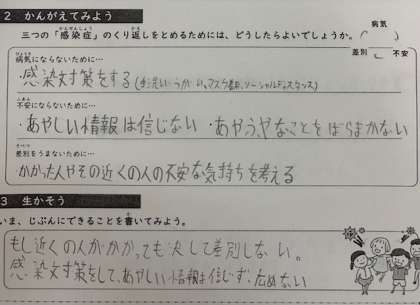 2 かんがえてみよう
三つの「感染症」のくり返しをとめるためには、どうしたらよいでしょうか。
病気
差別
不安
病気にならないために…
・感染対策をする(手洗い・うがい、マスク着用、ソーシャルディスタンス)
不安にならないために…
・あやしい情報は信じない ・あやふやなことをばらまかない
差別をうまないために…
かかった人やその近くの人の不安な気持ちを考える
3 生かそう
いま、じぶんにできることを書いてみよう。
もし近くの人がかかっても決して差別しない。
感染対策をして、あやしい情報は信じず、広めない